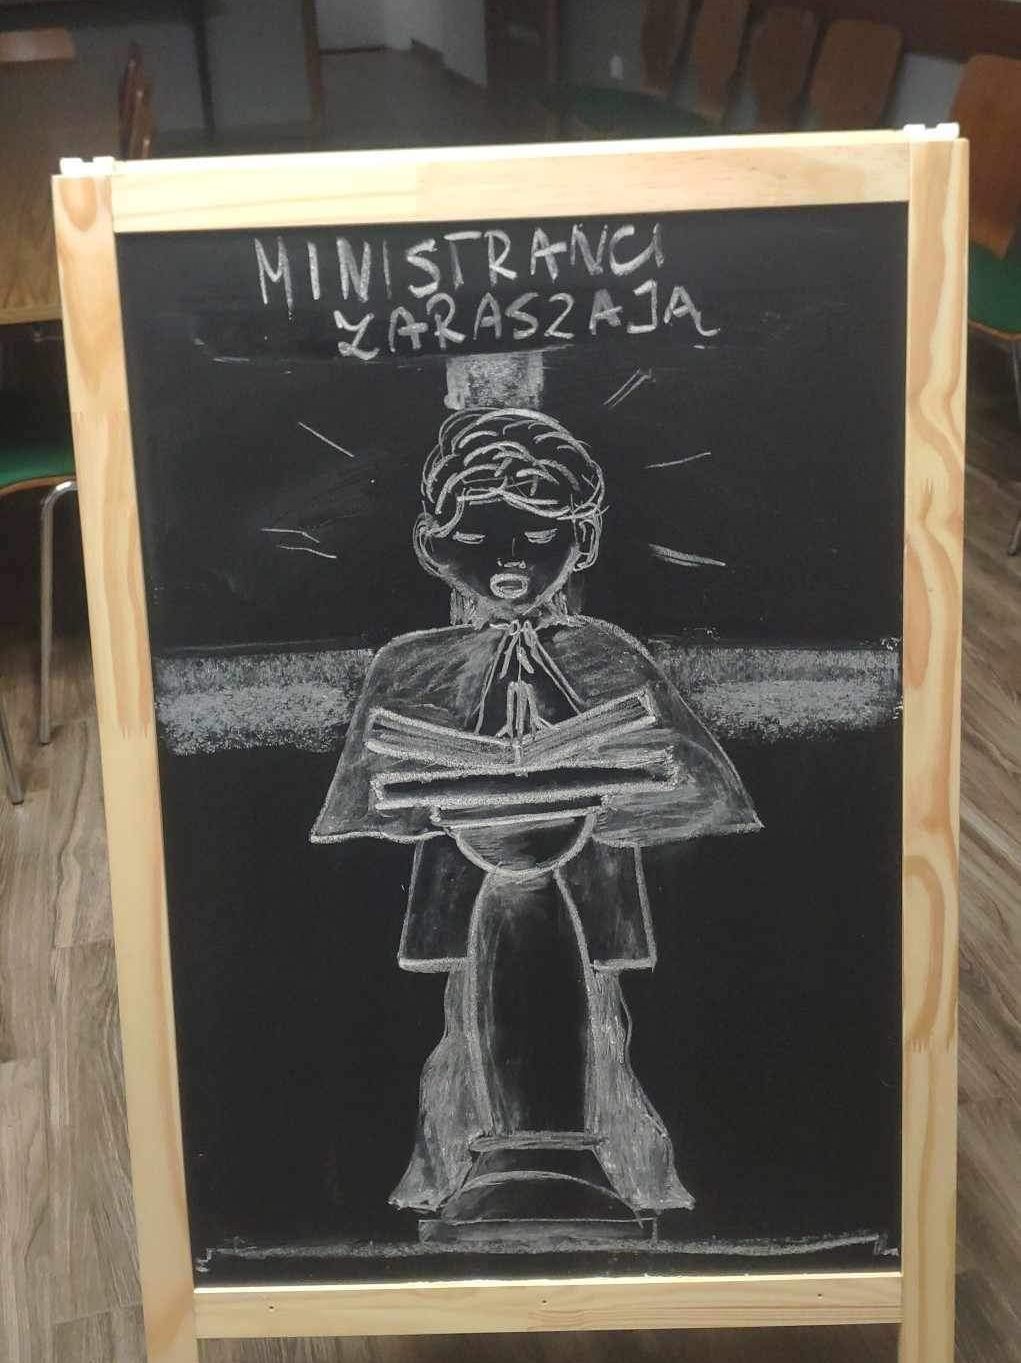 MINISTRANCI
ZARASZAJĄ